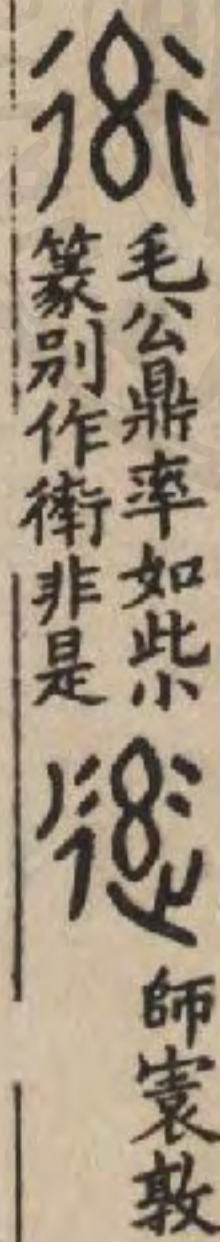 毛公鼎率如此小
篆別作非是
師㝨敦